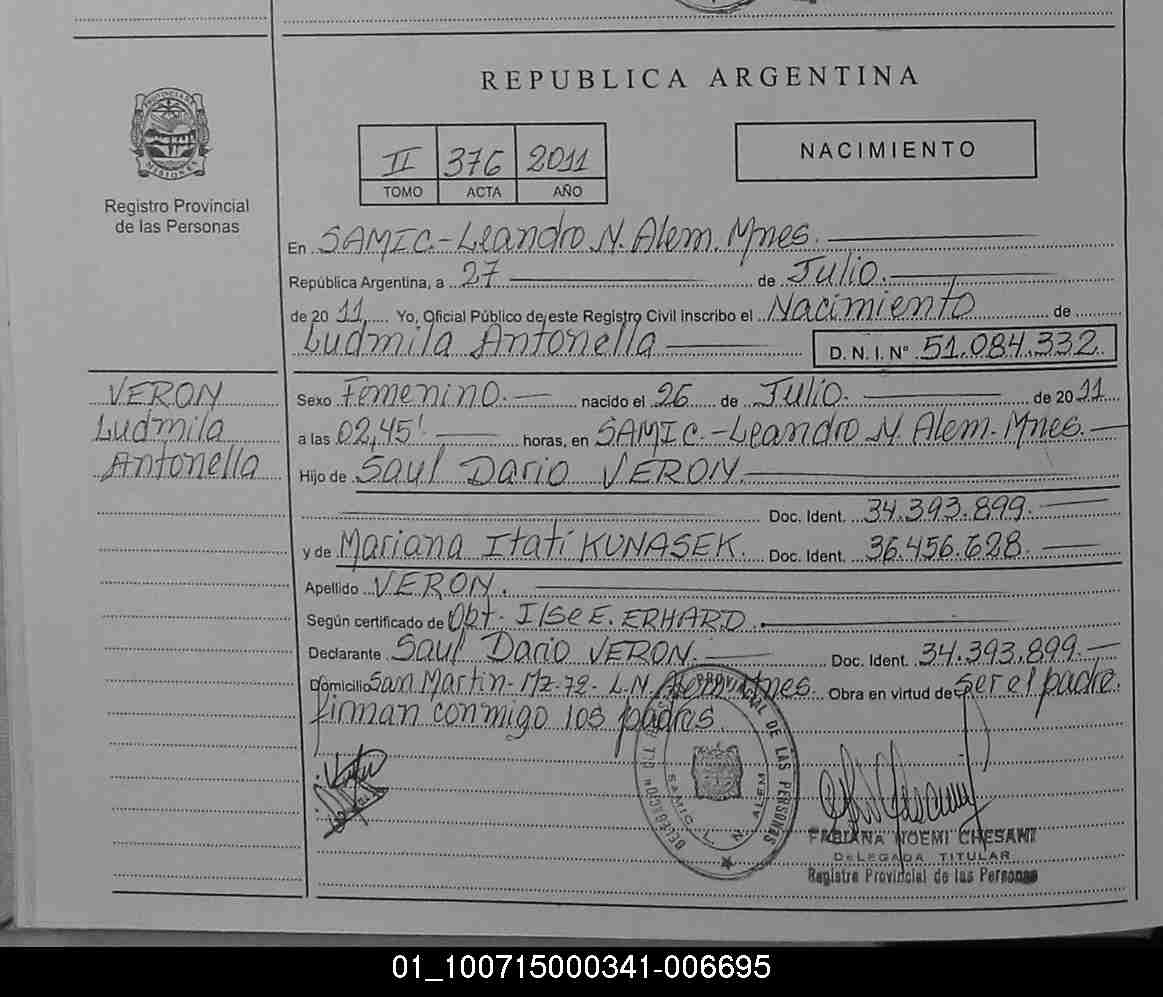 REPUBLICA ARGENTINA
PROVINCIA DE MISIONES
Registro Provincial
de las Personas
II 376 2011
TOMO ACTA AÑO
NACIMIENTO
En SAMIC.-Leandro N. Alem. Mnes.
República Argentina, a 27 de Julio.
de 20 11 Yo, Oficial Público de este Registro Civil inscribo el Nacimiento de
Ludmila Antonella D. N. I. N° 51.084.332
VERON
Ludmila
Antonella
Sexo Femenino. nacido el 26 de Julio. de 20 11
a las 02,45' horas, en SAMIC.-Leandro N. Alem. Mnes.
Hijo de Saul Dario VERON.
Doc. Ident. 34.393.899.
y de Mariana Itatí KUNASEK. Doc. Ident. 36.456.628.
Apellido VERON.
Según certificado de Obt. Ilse E. ERHARD.
Declarante Saul Dario VERON. Doc. Ident. 34.393.899.
Domicilio San Martin-Mz-72- L.N. Alem. Mnes. Obra en virtud de ser el padre.
firman conmigo los padres
PROVINCIAL DE LAS PERSONAS
DELEGACION
SAMIC L. N. ALEM
FABIANA NOEMI CHESANI
DELEGADA TITULAR
Registro Provincial de las Personas
01_100715000341-006695